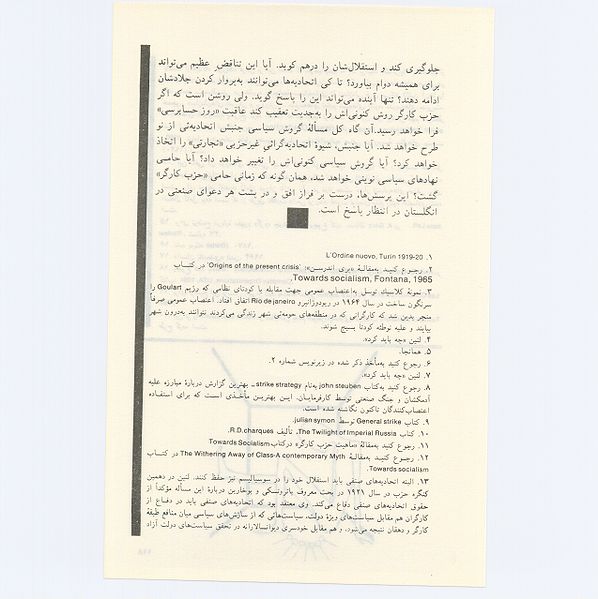 جلوگیری کند و استقلال‌شان را درهم کوبد. آیا این تناقضِ عظیم می‌تواند
برای همیشه دوام بیاورد؟ تا کی اتحادیه‌ها می‌توانند به‌پروار کردن جلادشان
ادامه دهند؟ تنها آینده می‌تواند این را پاسخ گوید. ولی روشن است که اگر
حزب کارگر روش کنونی‌اش را به‌جدیت تعقیب کند عاقبت «روز حسابرسی»
فرا خواهد رسید. آن گاه کل مسألهٔ گروش سیاسی جنبش اتحادیه‌ئی از نو
طرح خواهد شد. آیا جنبش، شیوهٔ اتحادیه‌گرائی غیرحزبی «تجارتی» را اتخاذ
خواهد کرد؟ آیا گروش سیاسی کنونی‌اش را تغییر خواهد داد؟ آیا حامی
نهادهای سیاسی نوینی خواهد شد، همان گونه که زمانی حامی «حزب کارگر»
گشت؟ این پرسش‌ها، درست بر فراز افق و در پشت هر دعوای صنعتی در
انگلستان در انتظار پاسخ است.
۱. L'Ordine nuovo, Turin 1919-20
۲. رجوع کنید به‌مقالهٔ «پری اندرسن»: 'Origins of the present crisis' در کتاب
Towards socialism, Fontana, 1965.
۳. نمونهٔ کلاسیك توسل به‌اعتصاب عمومی جهت مقابله با کودتای نظامی که رژیم Goulart را
سرنگون ساخت در سال ۱۹۶۴ در ریودوژانیرو Rio de janeiro اتفاق افتاد. اعتصاب عمومی صرفاً
منجر بدین شد که کارگرانی که در منطقه‌های حومه‌ئی شهر زندگی می‌کردند نتوانند به‌درون شهر
بیایند و علیه توطئه کودتا بسیج شوند.
۴. لنین «چه باید کرد».
۵. همانجا.
۶. رجوع کنید به‌مأخذ ذکر شده در زیرنویس شماره ۲.
۷. لنین «چه باید کرد».
۸. رجوع کنید به‌کتاب john steuben به‌نام strike strategy ـ بهترین گزارش دربارهٔ مبارزه علیه
آدمکشان و جنگ صنعتی توسط کارفرمایان. این بهترین مأخذی است که برای استفاده
اعتصاب‌کنندگان تاکنون نگاشته شده است.
۹. کتاب General strike توسط julian symon.
۱۰. کتاب The Twilight of Imperial Russia، تألیف R.D.charques.
۱۱. رجوع کنید به‌مقالهٔ «ماهیت حزب کارگر» درکتاب Towards Socialism
۱۲. رجوع کنید به‌مقالهٔ The Withering Away of Class-A contemporary Myth در کتاب
Towards socialism.
۱۳. البته اتحادیه‌های صنفی باید استقلال خود را در سوسیالیسم نیز حفظ کنند. لنین در دهمین
کنگره حزب در سال ۱۹۲۱ در بحث معروف باتروتسکی و بوخارین دربارهٔ این مسأله مؤکداً از
حقوق اتحادیه‌های صنفی دفاع می‌کند. وی معتقد بود که اتحادیه‌های صنفی باید در دفاع از
کارگران هم مقابل سیاست‌های ویژهٔ دولت، سیاست‌هائی که از سازش‌های سیاسی میان منافع طبقهٔ
کارگر و دهقان نتیجه می‌شود، و هم مقابل خودسری دیوانسالارانه در تحقق سیاست‌های دولت آزاد